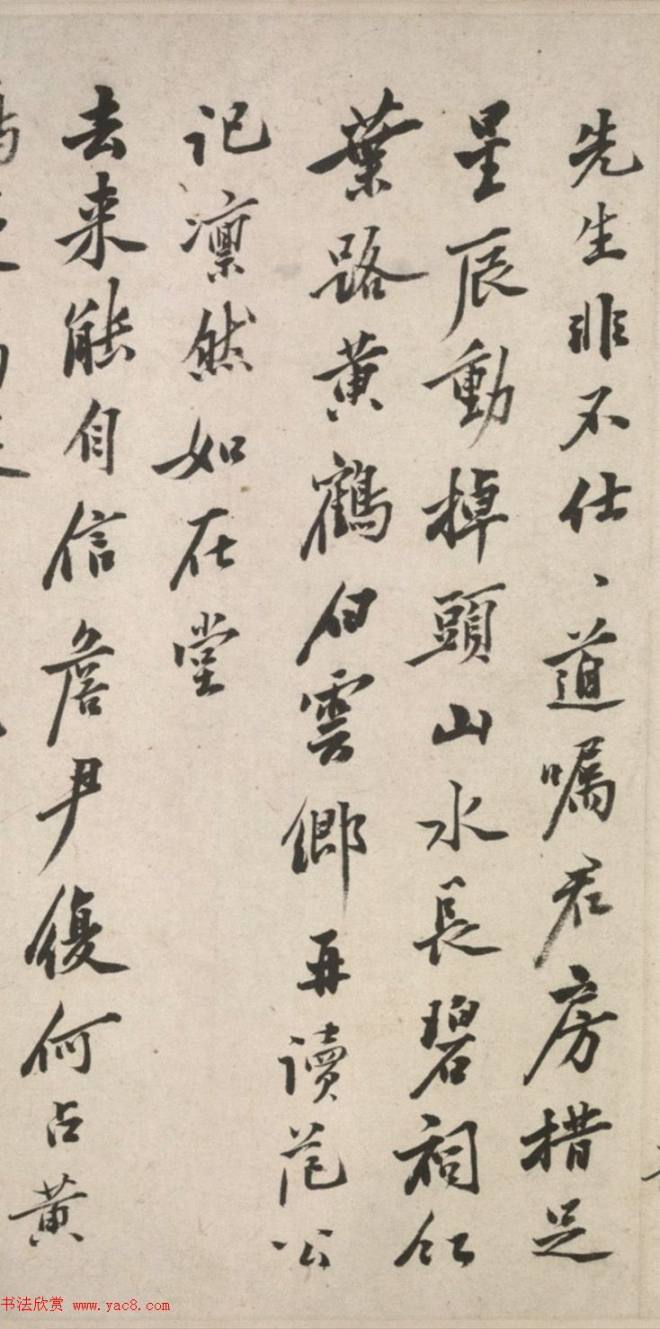 先生非不仕、道嘱君房措足
星辰動掉頭山水長碧祠紅
葉路黄鶴白雲鄉再讀范公
記凛然如在堂
去来能自信詹尹復何占黄
书法欣赏 www.yac8.com